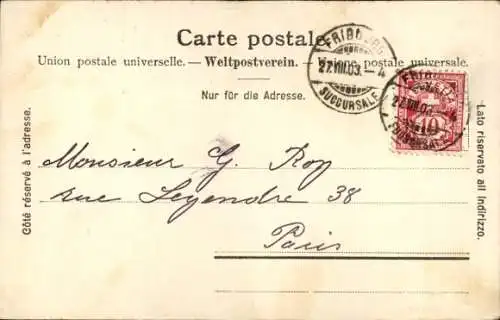 Carte postale.
Union postale universelle. — Weltpostverein. — Unione postale universale.
Nur für die Adresse.
Côté réservé à l'adresse.
Lato riservato all indirizzo.
FRIBOURG
27.VIII.03. – 4
SUCCURSALE
FRIBOURG
27.VIII.03. – 4
SUCCURSALE
10
Monsieur G. Rop
rue Legendre 38
Paris